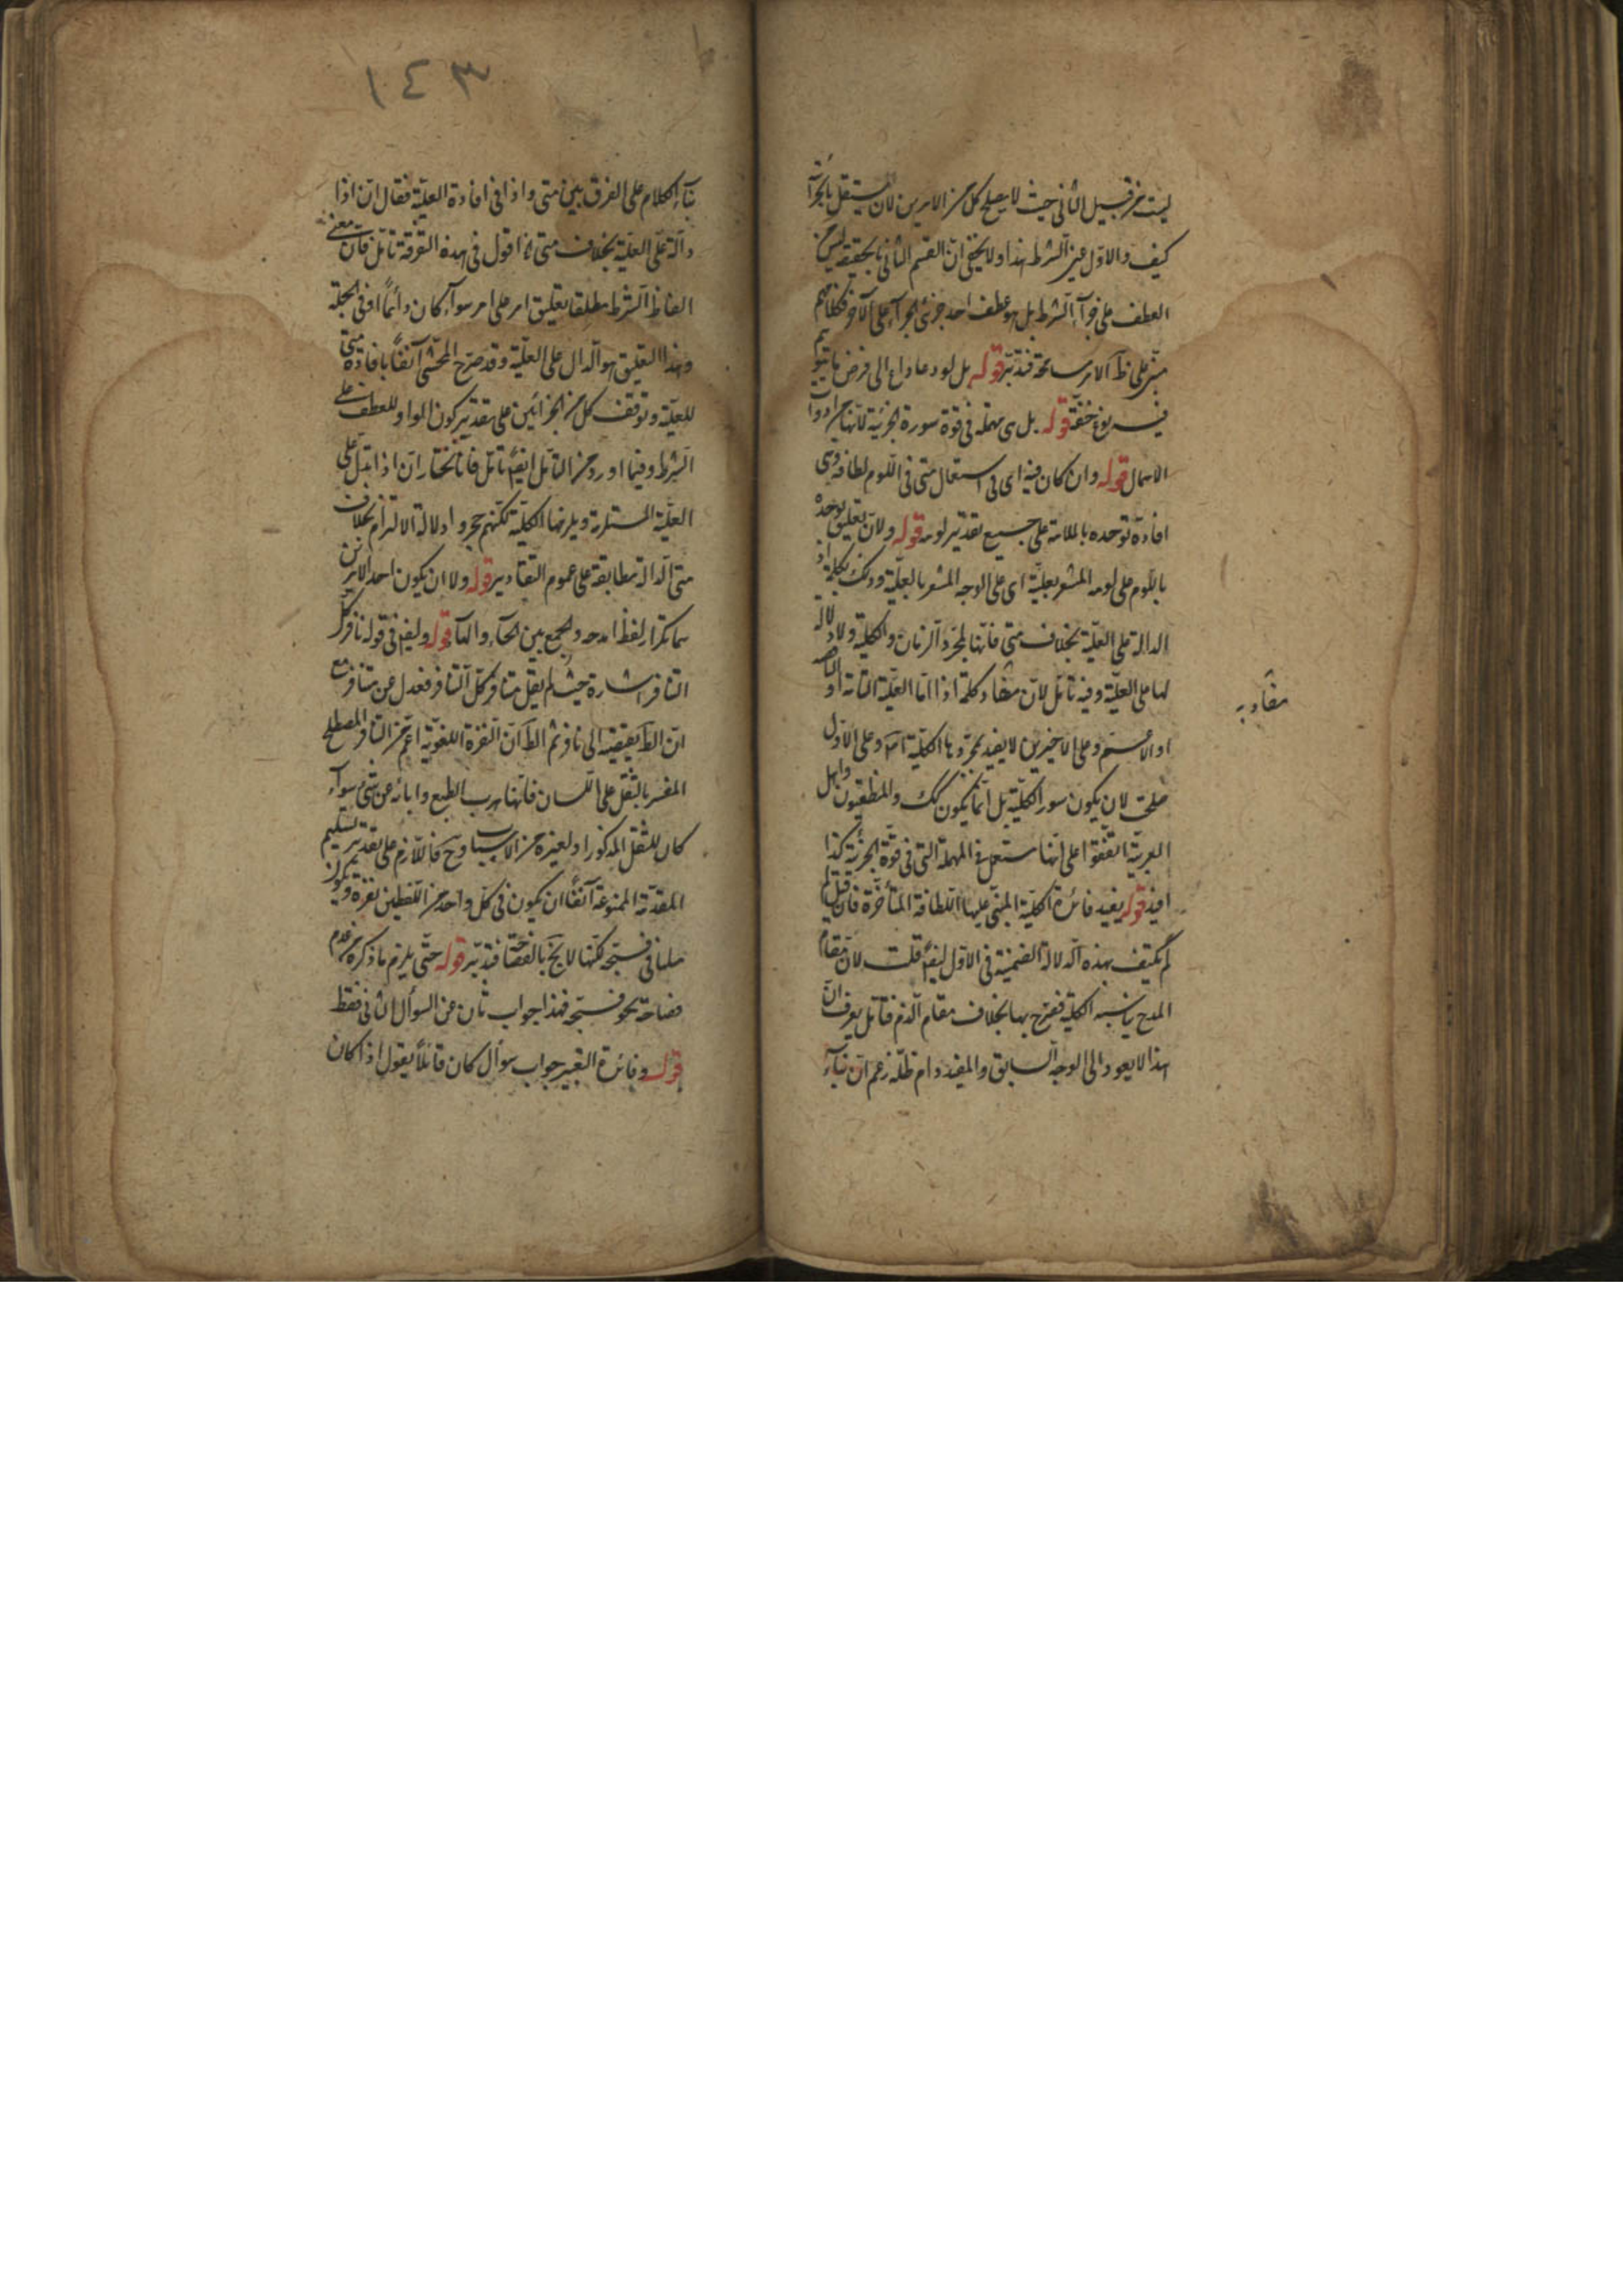 ليست من قبيل الثانى حيث لا يصلح كل من الامرين لان يستقل بالجزاء
كيف والاول عين الشرط هذا ولا يخفى ان القسم الثانى بالحقيقة ليس من
العطف على جزاء الشرط بل هو عطف احد جزئى الجزاء على الآخر فكلامهم
مبنى على ظ الامر مسامحة فتدبر قوله بل لو دعا داع الى فرض
قوله بل هى مهملة فى قوة سورة الجزئية لانها من ادوات
الاهمال قوله وان كان فيه اى فى استعمال متى فى اللوم لطافة وهى
افادة توحده بالملامة على جميع تقدير لومه قوله ولان تعليق توحده
باللوم على لومه المشعر بعلية اى على الوجه المشعر بالعلية وذلك بكلمة اذ
الدالة على العلية بخلاف متى فانها لمجرد الزمان والكلية ولا دلالة
لها على العلية وفيه تأمل لان مفاد كلمة اذا اما العلية التامة او الناقصة
او الاعم وعلى الاخيرين لا يفيد مجردها الكلية اص وعلى الاول
صلحت لان يكون سور الكلية بل انما يكون كك والمنطقيون واهل
العربية اتفقوا على انها تستعمل فى المهملة التى فى قوة الجزئية كذا
افيد قوله يفيد فائدة الكلية المبنى عليها اللطافة المتأخرة فان قيل لم
لم يكتف بهذه الدلالة الضمنية فى الاول ايض قلت لان مقام
المدح يناسبه الكلية فصرح بها بخلاف مقام الذم فتأمل يعرف ان
هذا لا يعود الى الوجه السابق والمفيد دام ظله زعم ان بناء
مفاد به
١٤٣
بناء الكلام على الفرق بين متى واذا فى افادة العلية فقال ان اذا
دالة على العلية بخلاف متى اقول فى هذه التفرقة تأمل فان معنى
الفاظ الشرط مطلقا تعليق امر على امر سواء كان دائما او فى الجملة
وهذا التعليق هو الدال على العلية وقد صرح المحشى آنفا بافادة متى
للعلية وتوقف كل من الجزائين على تقدير كون الواو للعطف على
الشرط وفيما اورد من التأمل ايض تأمل فانا نختار ان اذا تدل على
العلية المستلزمة ويلزمها الكلية لكنهم دلالة الالتزام بخلاف
متى الدالة مطابقة على عموم التقادير قوله ولا ان يكون احد الامرين
هما تكرار لفظ امدحه والجمع بين الحاء والهاء قوله ولفظ فى قوله نافر كل
التنافر اشارة حيث لم يقل متنافر كل التنافر فعدل عن متنافر مع
ان الظ يقتضيه الى نافر ثم الظ ان النفرة اللغوية اعم من التنافر المصطلح
المفسر بالثقل على اللسان فانها هرب الطبع وابائه عن شئ سواء
كان للثقل المذكور او لغيره من الاسباب وح فاللازم على تقدير تسليم
المقدمة الممنوعة آنفا ان يكون فى كل واحد من اللفظين نفرة ويكون
مثلنا فى فسبحه لكنها لا يخ بالفصاحة فتدبر قوله حتى يلزم ما ذكره من عدم
فصاحة نحو فسبحه فهذا جواب ثان عن السؤال الثانى فقط
قوله وفائدة التغيير جواب سوأل كان قائلا يقول اذا كان